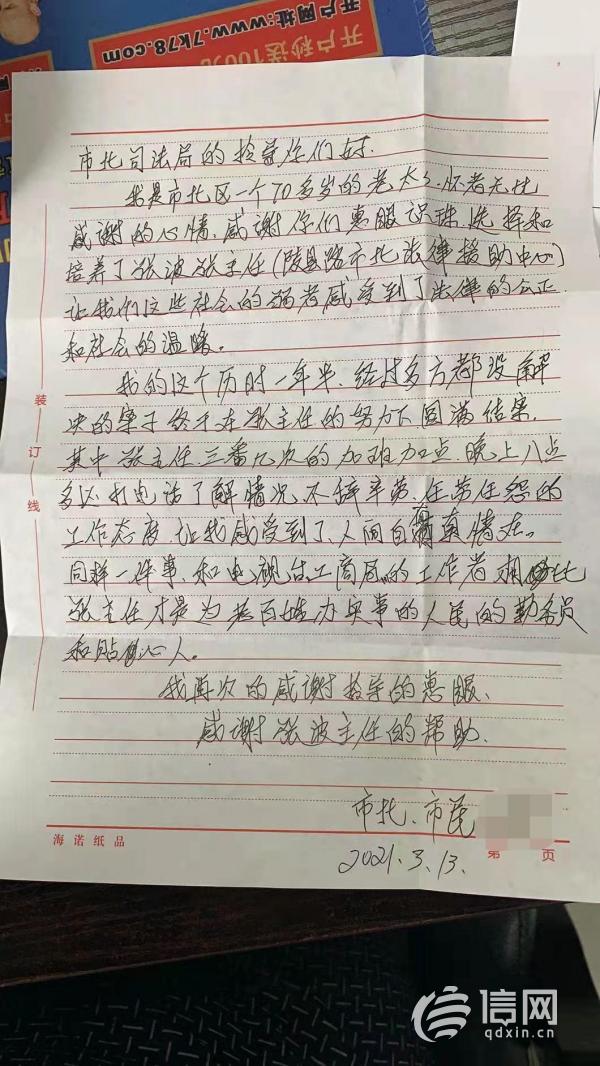 开户秒送100元
开户网址:www.7k78.com
市北司法局的领导你们好.
我是市北区一个70多岁的老太太.怀着无比
感谢的心情.感谢你们惠眼识珠.选择和
培养了张波张主任(陵县路市北法律援助中心)
让我们这些社会的弱者感受到了法律的公正.
和社会的温暖。
我的这个历时一年半.经过多方都没解
决的案子终于在张主任的努力下圆满结案.
其中张主任三番几次的加班加点.晚上八点
多还打电话了解情况.不辞辛劳.任劳任怨的
工作态度.让我感受到了.人间自有真情在。
同样一件事.和电视台.工商局的工作者相比
张主任才是为老百姓办实事的人民的勤务员
和贴心人。
我再次的感谢领导的惠眼、
感谢张波主任的帮助.
市北.市民
2021.3.13.
装订线
海诺纸品
第 页
信网
qdxin.cn